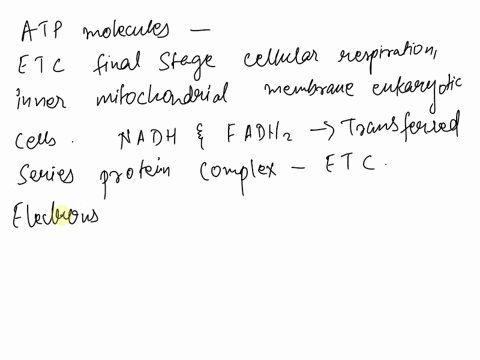 ATP molecules —
ETC final stage cellular respiration,
inner mitochondrial membrane eukaryotic
cells. NADH & FADH₂ → Transferred
Series protein complex – ETC.
Electrons